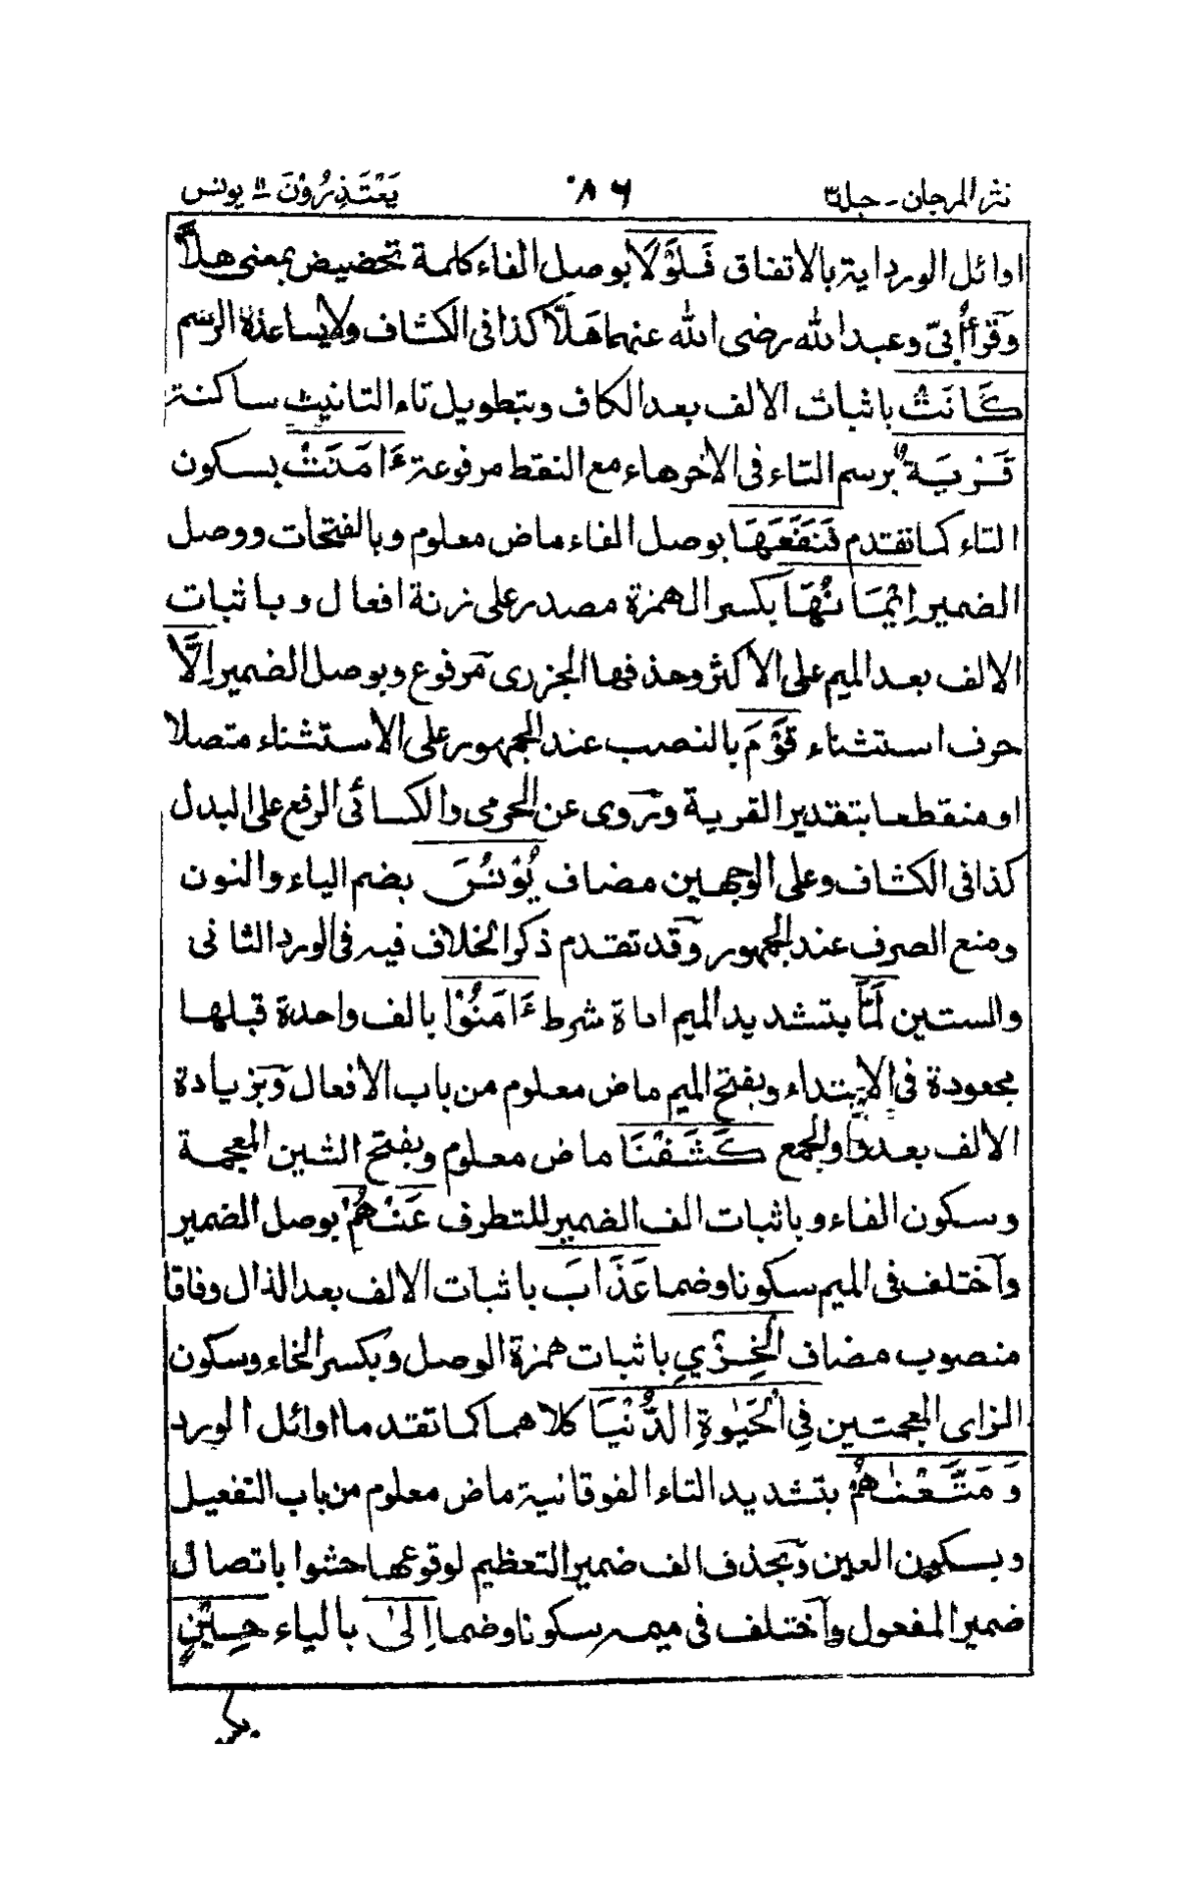 نثر المرجان - جلد٣ ٠٨٦ يَعْتَذِرُوْنَ ١١ يونس
اوائل الورد اية بالاتفاق فَلَوْلَا بوصل الفاء كلمة تحضيض بمعنى هلَّا
وَقرأ أُبىّ وعبد الله رضى الله عنهما هَلَّا كذا فى الكشاف ولايساعدہ الرسم
كَانَتْ باثبات الالف بعد الكاف وبتطويل تاء التانيث ساكنة
قَرْيَةٌ برسم التاء فى الاخر هاء مع النقط مرفوعة ءَامَنَتْ بسكون
التاء كما تقدم فَنَفَعَهَا بوصل الفاء ماض معلوم وبالفتحات ووصل
الضمير اِيْمَانُهَا بكسر الهمزة مصدر على زنة افعال وباثبات
الالف بعد الميم على الاكثر وحذفها الجزرى مَرفوع وبوصل الضمير اِلَّا
حرف استثناء قَوْمَ بالنصب عند الجمهور على الاستثناء متصلا
او منقطعا بتقدير القرية وَيروى عن الجرمى والكسائى الرفع على البدل
كذا فى الكشاف وعلى الوجهين مضاف يُوْنُسَ بضم الياء والنون
ومنع الصرف عند الجمهور وَقد تقدم ذكر الخلاف فيه فى الورد الثانى
والستين لَمَّا بتشديد الميم اداة شرط ءَامَنُوْا بالف واحدة قبلها
مجعودة فى الابتداء وبفتح الميم ماض معلوم من باب الافعال وَبزيادة
الالف بعد واو الجمع كَشَفْنَا ماض معلوم وبفتح الشين المعجمة
وسكون الفاء وباثبات الف الضمير للتطرف عَنْهُمْ بوصل الضمير
وَاختلف فى الميم سكونا وضما عَذَابَ باثبات الالف بعد الذال وفاقا
منصوب مضاف الْخِزْيِ باثبات همزة الوصل وبكسر الخاء وسكون
الزاى المعجمتين فِي الْحَيٰوةِ الدُّنْيَا كلاهما كما تقدما اوائل الورد
وَمَتَّعْنٰهُمْ بتشديد التاء الفوقانية ماض معلوم من باب التفعيل
وبسكون العين وَبحذف الف ضمير التعظيم لوقوعها حشوا باتصال
ضمير المفعول وَاختلف فى ميمه سكونا وضما اِلٰى بالياء حِيْنٍ